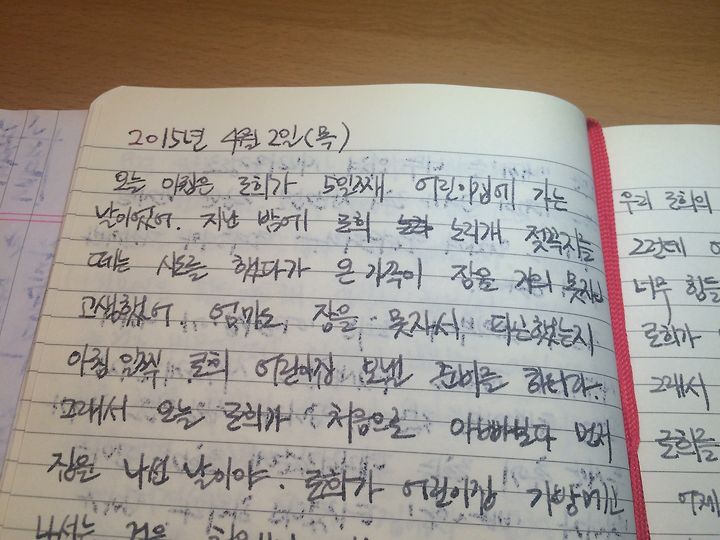 2015년 4월 2일(목)
오늘 아침은 로희가 5일째 어린이집에 가는
날이었어. 지난 밤에 로희 노리개 젖꼭지를
떼는 시도를 했다가 온 가족이 잠을 거의 못자고
고생했었어. 엄마도 잠을 못자서 피곤했는지
아침 일찍 로희 어린이집 보낼 준비를 하더라.
그래서 오늘 로희가 처음으로 아빠보다 먼저
집을 나선 날이야. 로희가 어린이집 가방메고
나서는 것을
우리 로희의
그런데
너무 힘들
로희가
그래서
로희를
어제